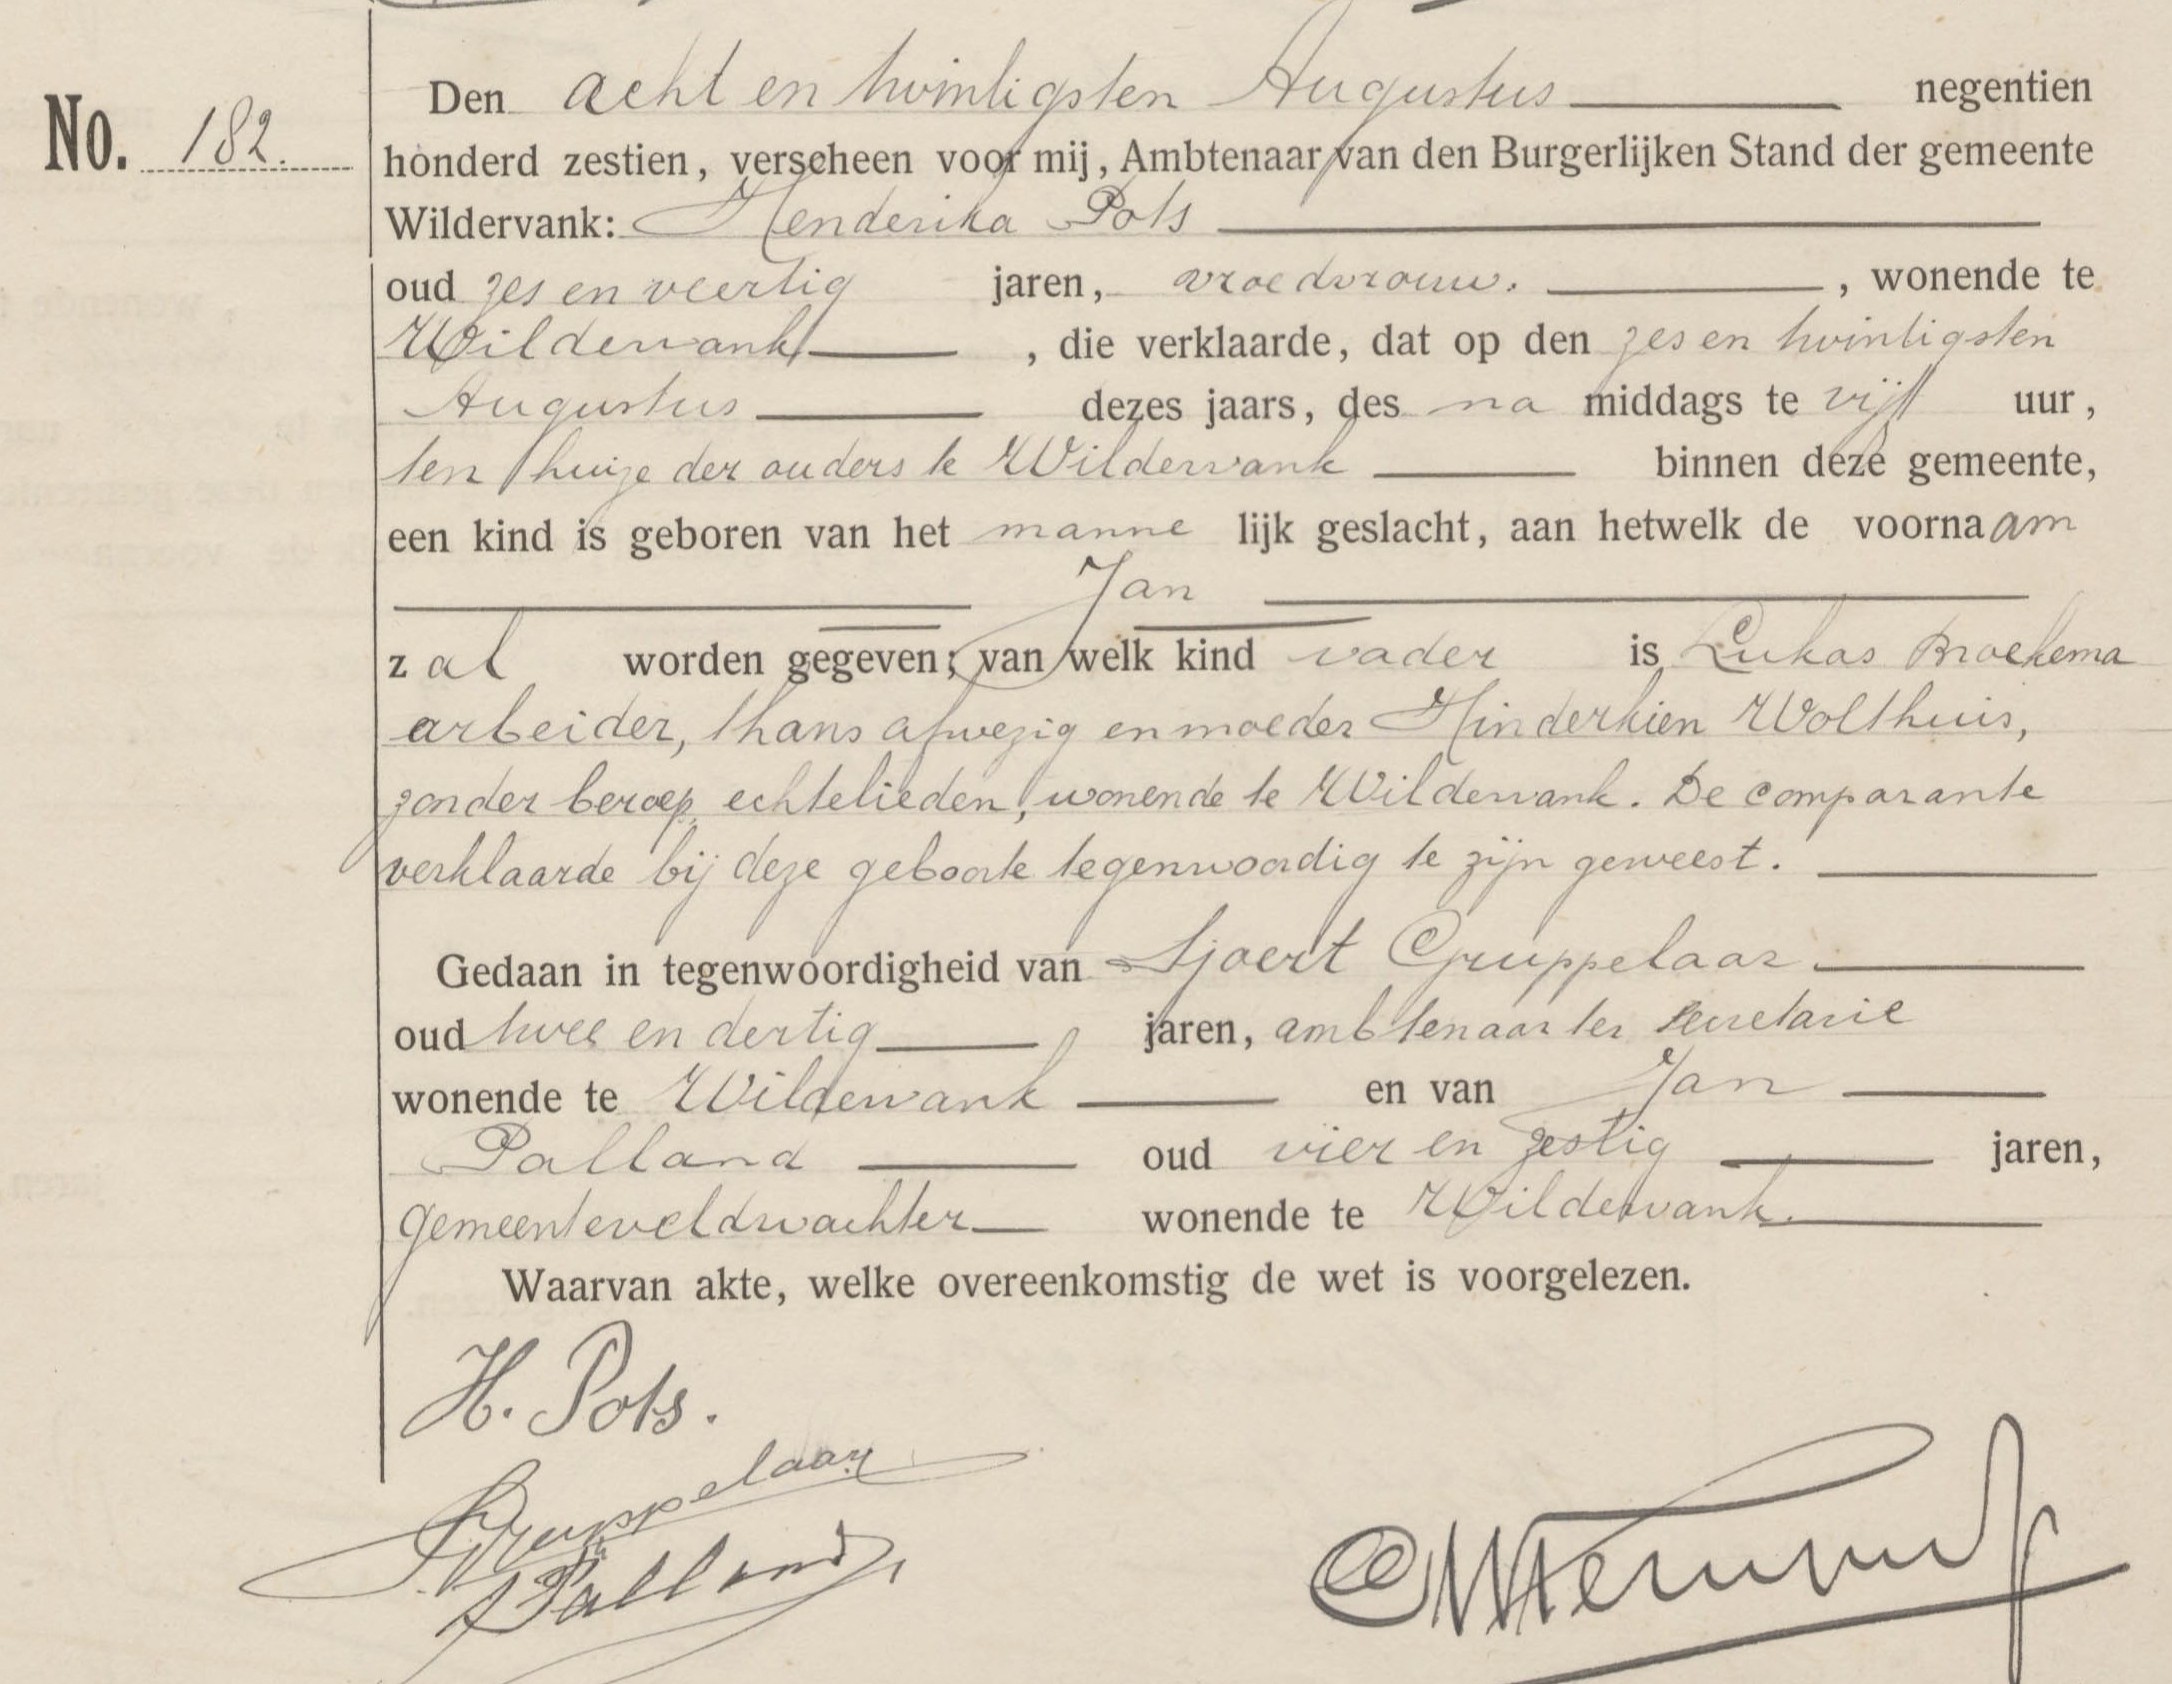 No. 182.
Den acht en twintigsten Augustus negentien
honderd zestien, verscheen voor mij, Ambtenaar van den Burgerlijken Stand der gemeente
Wildervank: Henderika Pots
oud zes en veertig jaren, vroedvrouw. , wonende te
Wildervank , die verklaarde, dat op den zes en twintigsten
Augustus dezes jaars, des na middags te vijf uur,
ten huize der ouders te Wildervank binnen deze gemeente,
een kind is geboren van het manne lijk geslacht, aan hetwelk de voornaam
Jan
zal worden gegeven; van welk kind vader is Lukas Broekema
arbeider, thans afwezig en moeder Hinderkien Wolthuis,
zonder beroep, echtelieden, wonende te Wildervank. De comparante
verklaarde bij deze geboorte tegenwoordig te zijn geweest.
Gedaan in tegenwoordigheid van Sjoert Gruppelaar
oud twee en dertig jaren, ambtenaar ter secretarie
wonende te Wildervank en van Jan
Palland oud vier en zestig jaren,
gemeenteveldwachter wonende te Wildervank.
Waarvan akte, welke overeenkomstig de wet is voorgelezen.
H. Pots.
S. Gruppelaar
J Palland